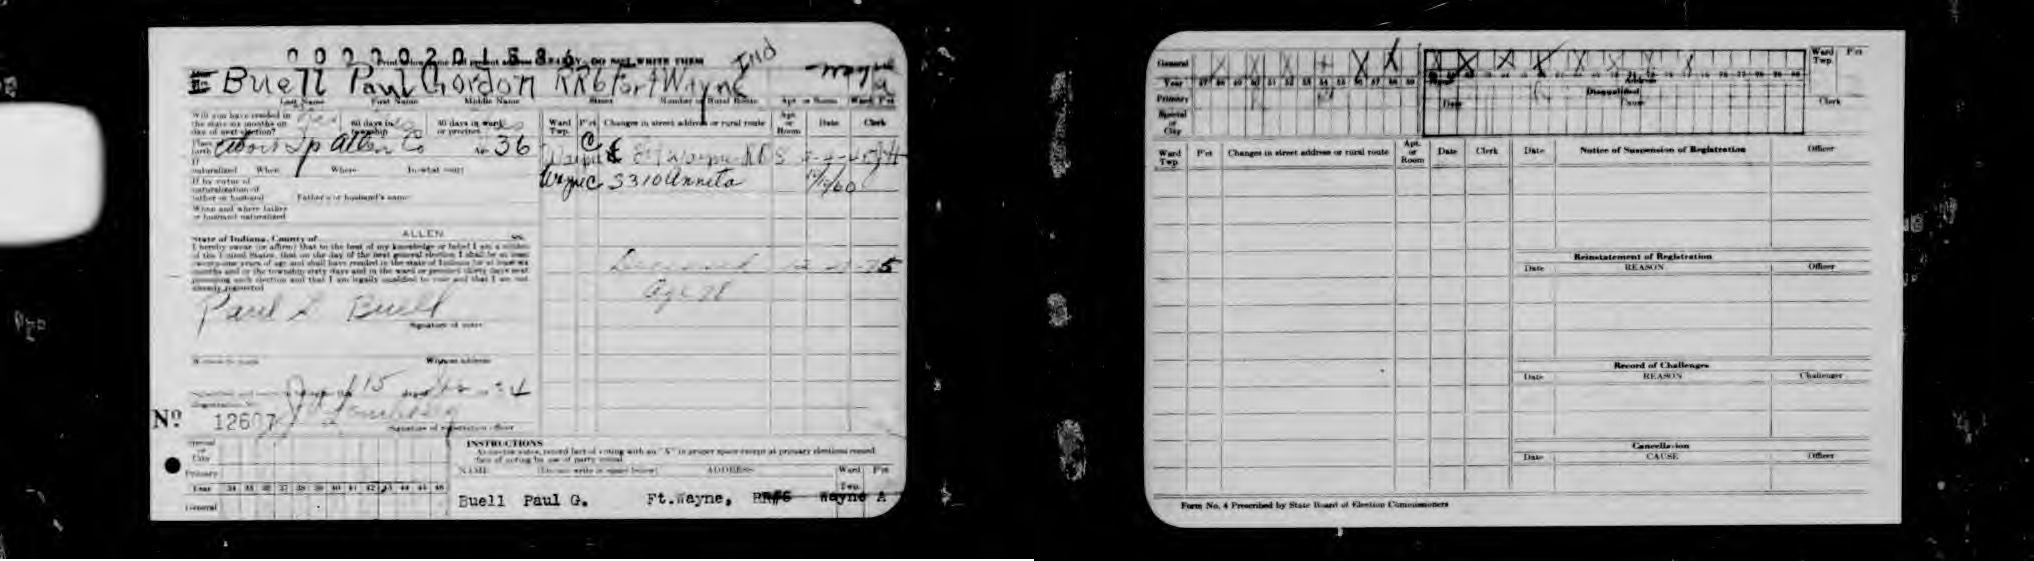 00220201586
Print below name and present address CLEARLY—DO NOT WRITE THEM
Buell Paul Gordon RR6 Fort Wayne Ind Wayne A
Last Name First Name Middle Name Street Number or Rural Route Apt. or Room Ward P'ct
Will you have resided in
the state six months on 60 days in 30 days in ward
day of next election? township or precinct
Ward Twp. P'ct Changes in street address or rural route Apt. or Room Date Clerk
Tp Allen Co Age 36
If naturalized When Where In what court
Wayne C Ft Wayne RR 8
Wayne C 3310 Anneta 60
If by virtue of
naturalization of
father or husband Father's or husband's name
When and where father
or husband naturalized
State of Indiana, County of ALLEN ss.
I hereby swear (or affirm) that to the best of my knowledge or belief I am a citizen
of the United States, that on the day of the next general election I shall be at least
twenty-one years of age and shall have resided in the state of Indiana for at least six
months and in the township sixty days and in the ward or precinct thirty days next
preceding such election and that I am legally qualified to vote and that I am not
already registered
Deceased 75
Age 78
Paul G Buell
Signature of voter
Witness to mark Witness address
15 day of
Registration No.
Nº 12607
Signature of registration officer
Special or City
Primary
Year 34 35 36 37 38 39 40 41 42 43 44 45 46
General
INSTRUCTIONS
As elector votes, record fact of voting with an "X" in proper space except at primary elections record
fact of voting by use of party initial.
NAME (Do not write in space below) ADDRESS Ward Twp. P'ct
Buell Paul G. Ft.Wayne, RR#6 Wayne A
General
Year 47 48 49 50 51 52 53 54 55 56 57 58 59
Primary
Special or City
Name Address
Disqualified
Date Cause
Ward Twp. P'ct
Clerk
Ward Twp. P'ct Changes in street address or rural route Apt. or Room Date Clerk
Date Notice of Suspension of Registration Officer
Reinstatement of Registration
Date REASON Officer
Record of Challenges
Date REASON Challenger
Cancellation
Date CAUSE Officer
Form No. 4 Prescribed by State Board of Election Commissioners